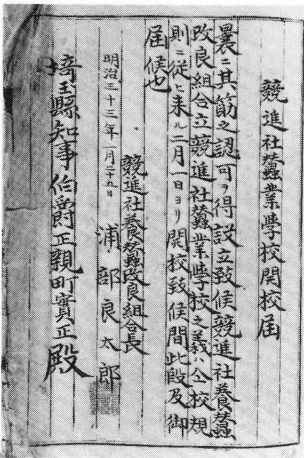 競進社蠶業學校開校屆
曩ニ其筋之認可ヲ得設立致候競進社養蠶
改良組合立競進社蠶業學校之義ハ仝校規
則ニ従ヒ来ル二月一日ヨリ開校致候間此段及御
屆候也
競進社養蠶改良組合長
明治三十三年一月二十五日 浦部良太郎
埼玉縣知事伯爵正親町實正殿